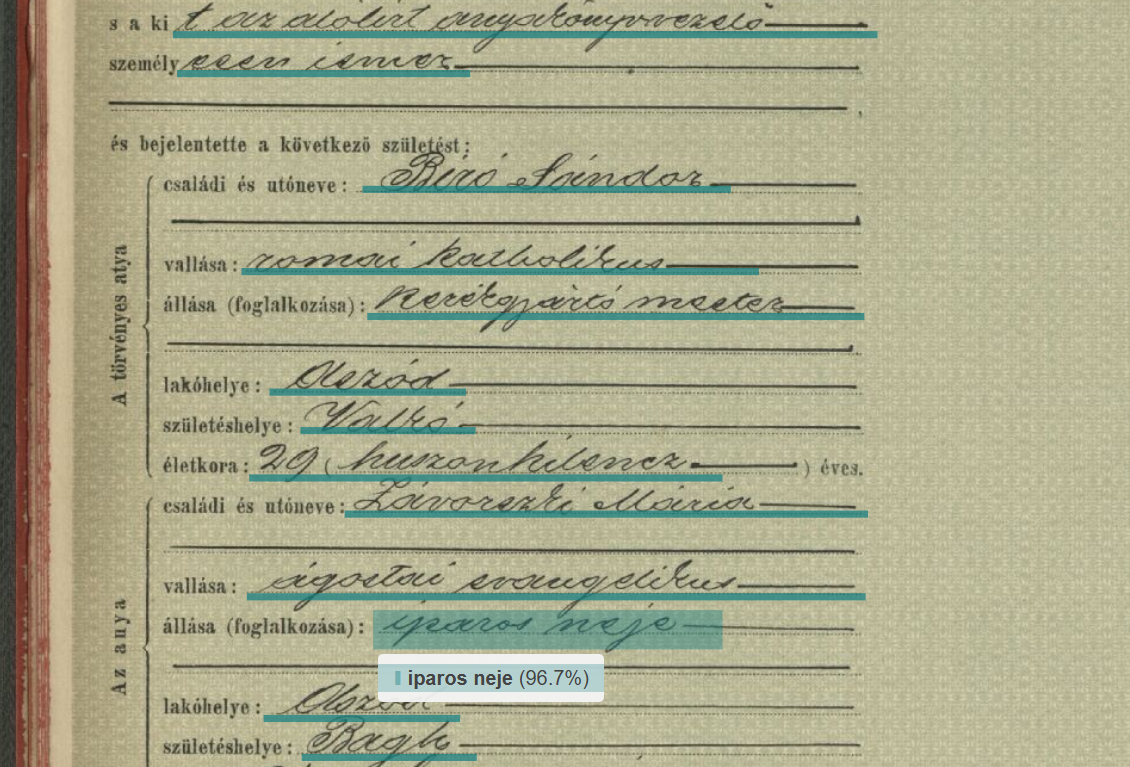 s a ki t az alólirt anyakönyvvezető
személy esen ismer
és bejelentette a következő születést:
A törvényes atya
családi és utóneve: Biró Sándor
vallása: romai katholikus
állása (foglalkozása): kerékgyártó mester
lakóhelye: Aszód
születéshelye: Valkó
életkora: 29 (huszonkilencz) éves.
Az anya
családi és utóneve: Závorszki Mária
vallása: ágostai evangelikus
állása (foglalkozása): iparos neje
iparos neje (96.7%)
lakóhelye: Aszód
születéshelye: Bagh